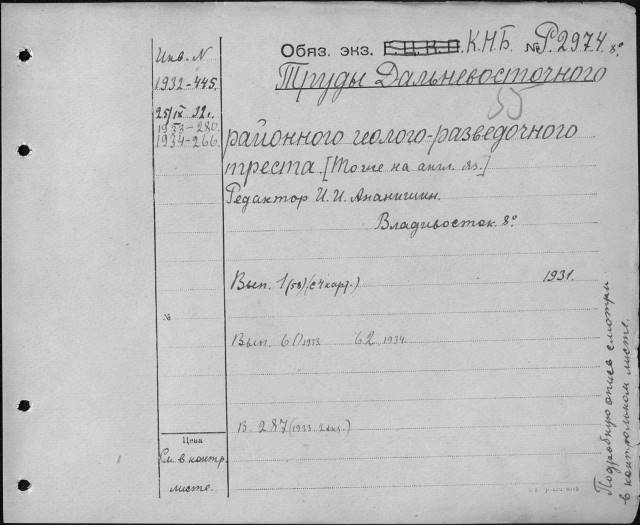 Инв. N
1932-445.
25/IX 32 г.
1933-280
1934-266
Обяз. экз. Г.Ц.К.П. К.Н.Б. № Р.2974. 8°
Труды Дальневосточного
55
районного геолого-разведочного
треста. [Тоже на англ. яз.]
Редактор И. И. Ананишин.
Владивосток. 8°
Вып. 1 (58) (с 4 карт.) 1931.
№
Вып. 60 1933 62, 1934.
В. 287 (1933. 2 экз.)
Цена
См. в контр.
листе.
Подробную опись смотри
в контрольном листе.